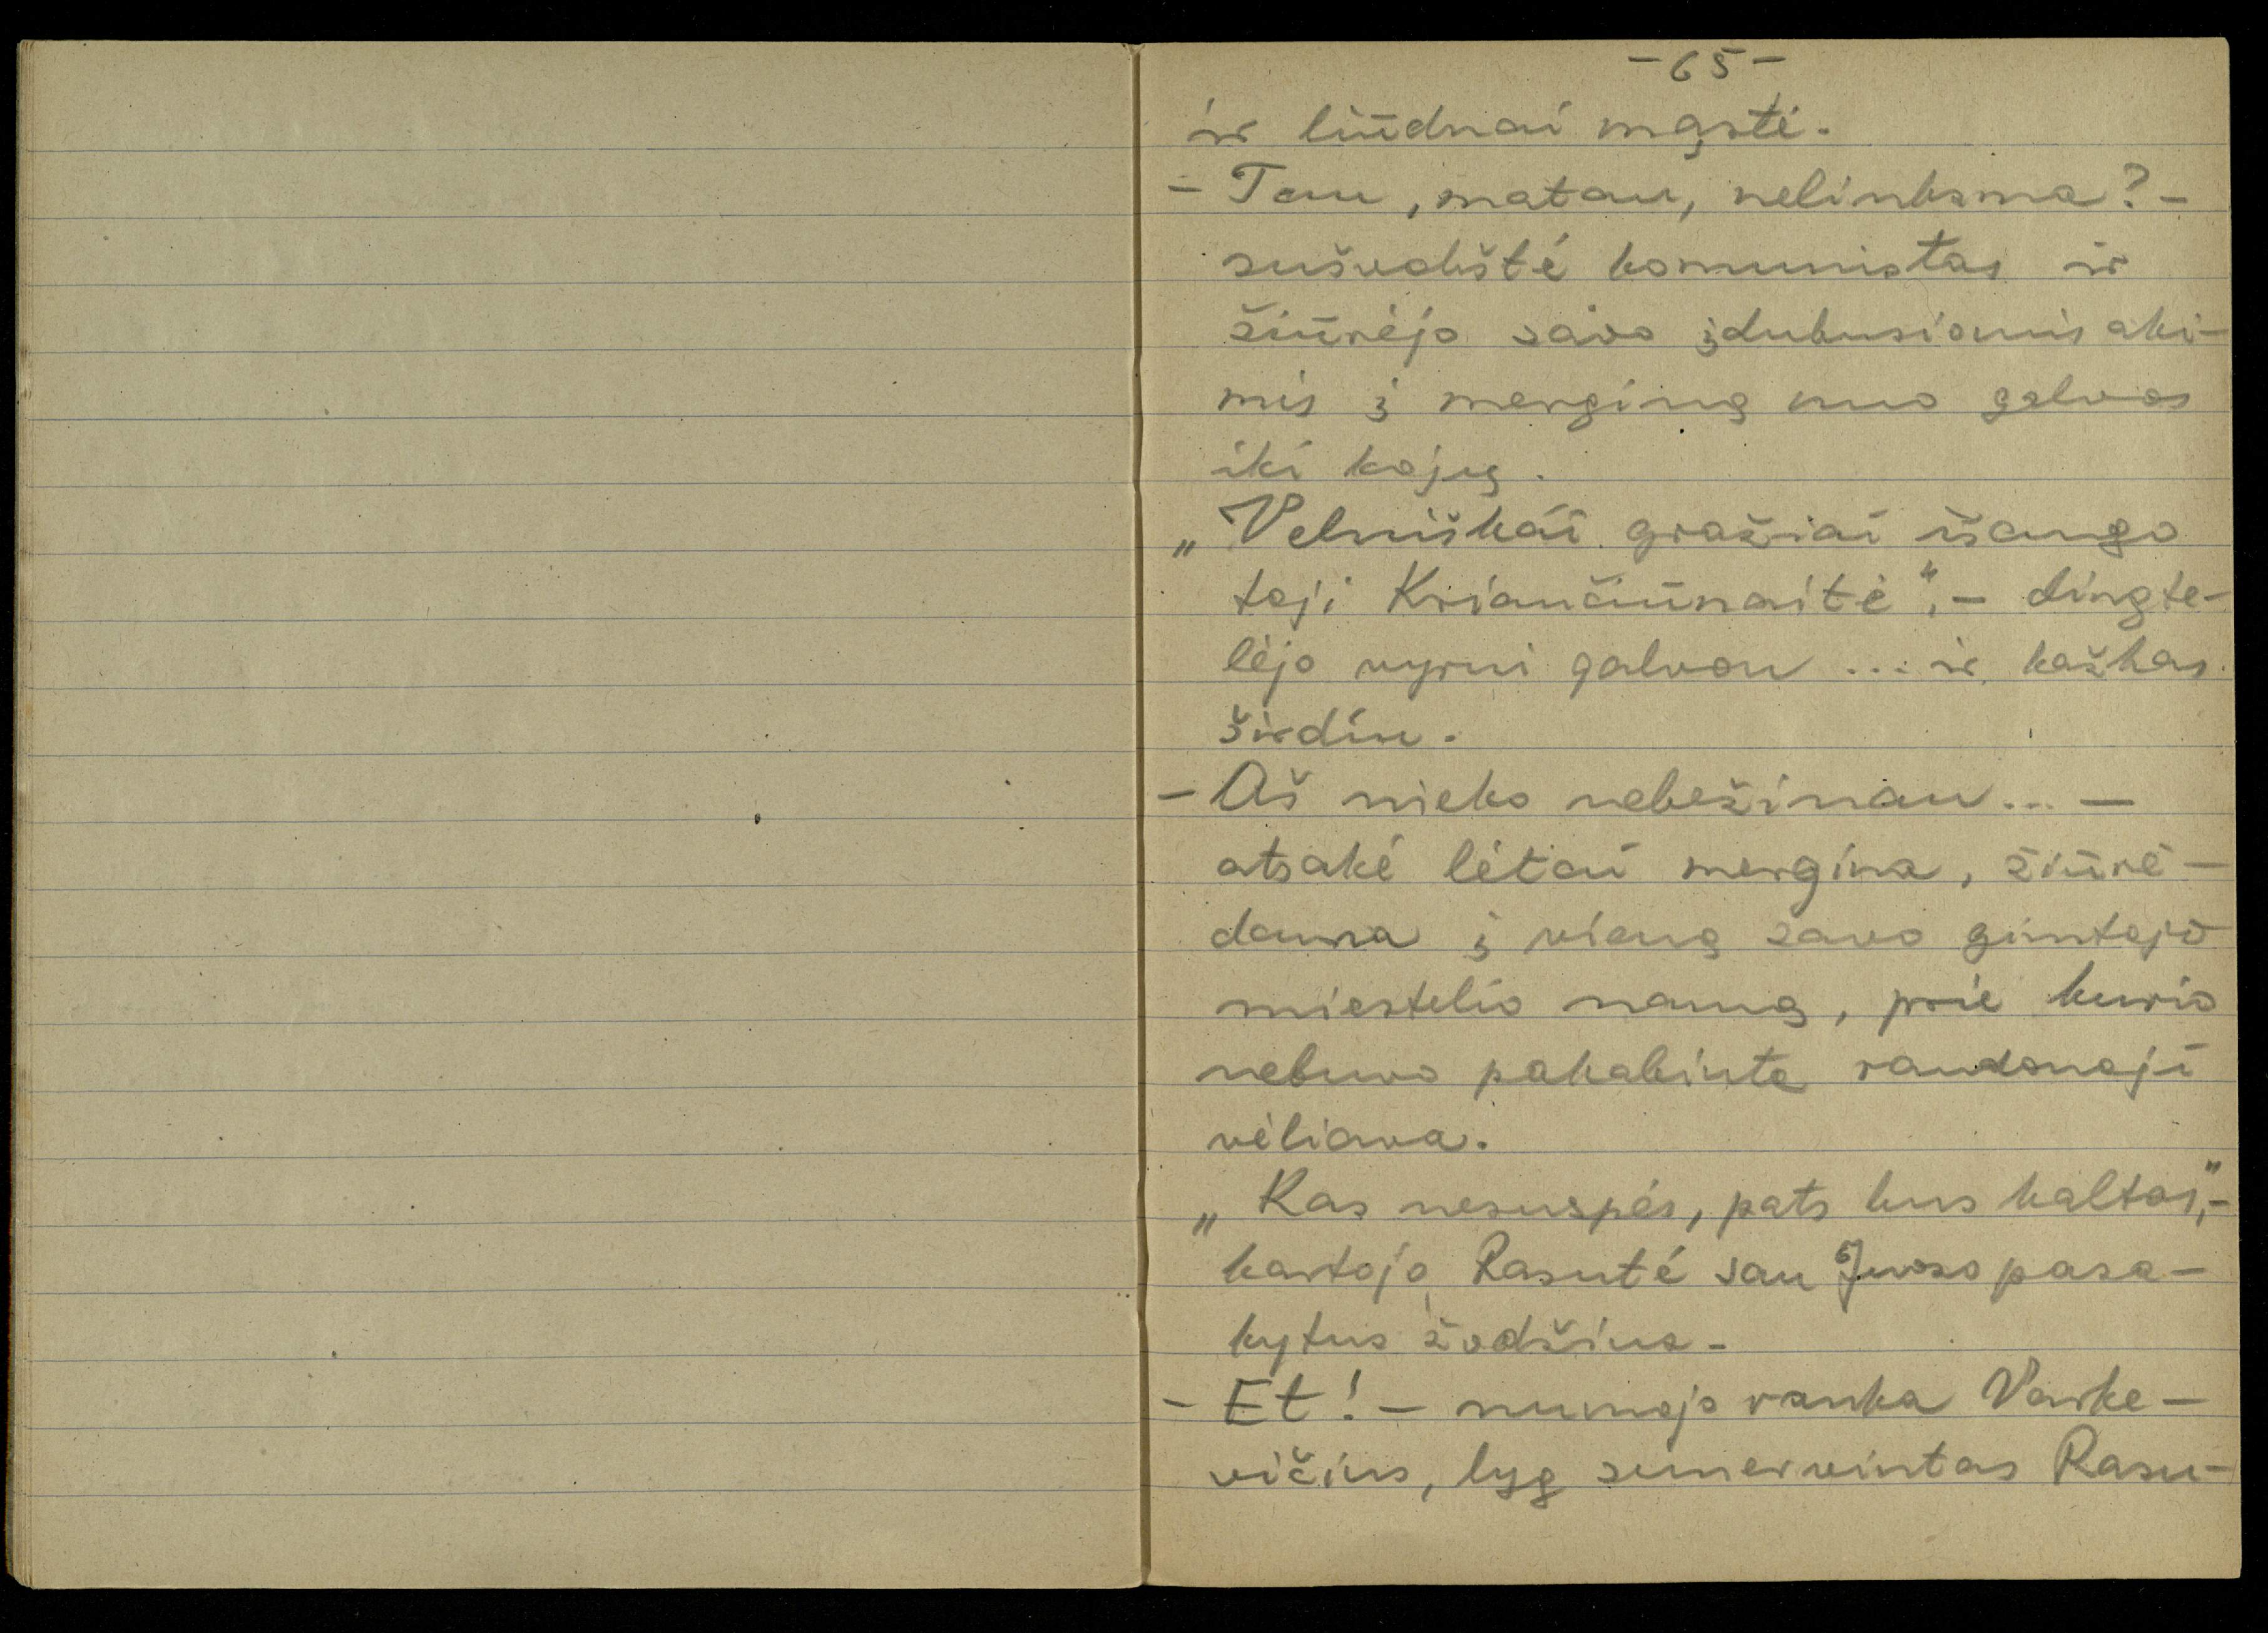 - 65 -
ir liūdnai mąstė.
- Tau, matau, nelinksma? -
sušvokštė komunistas ir
žiūrėjo savo įdubusiomis aki-
mis į merginą nuo galvos
iki kojų.
„Velniškai gražiai išaugo
toji Kriaučiūnaitė“, - dingte-
lėjo vyrui galvon ... ir kažkas
širdin.
- Aš nieko nebežinau... -
atsakė lėtai mergina, žiūrė-
dama į vieną savo gimtojo
miestelio namą, prie kurio
nebuvo pakabinta raudonoji
vėliava.
„Kas nesuspės, pats bus kaltas“, -
kartojo Rasutė sau Juozo pasa-
kytus žodžius.
- Et! - numojo ranka Varke-
vičius, lyg sunervintas Rasu-